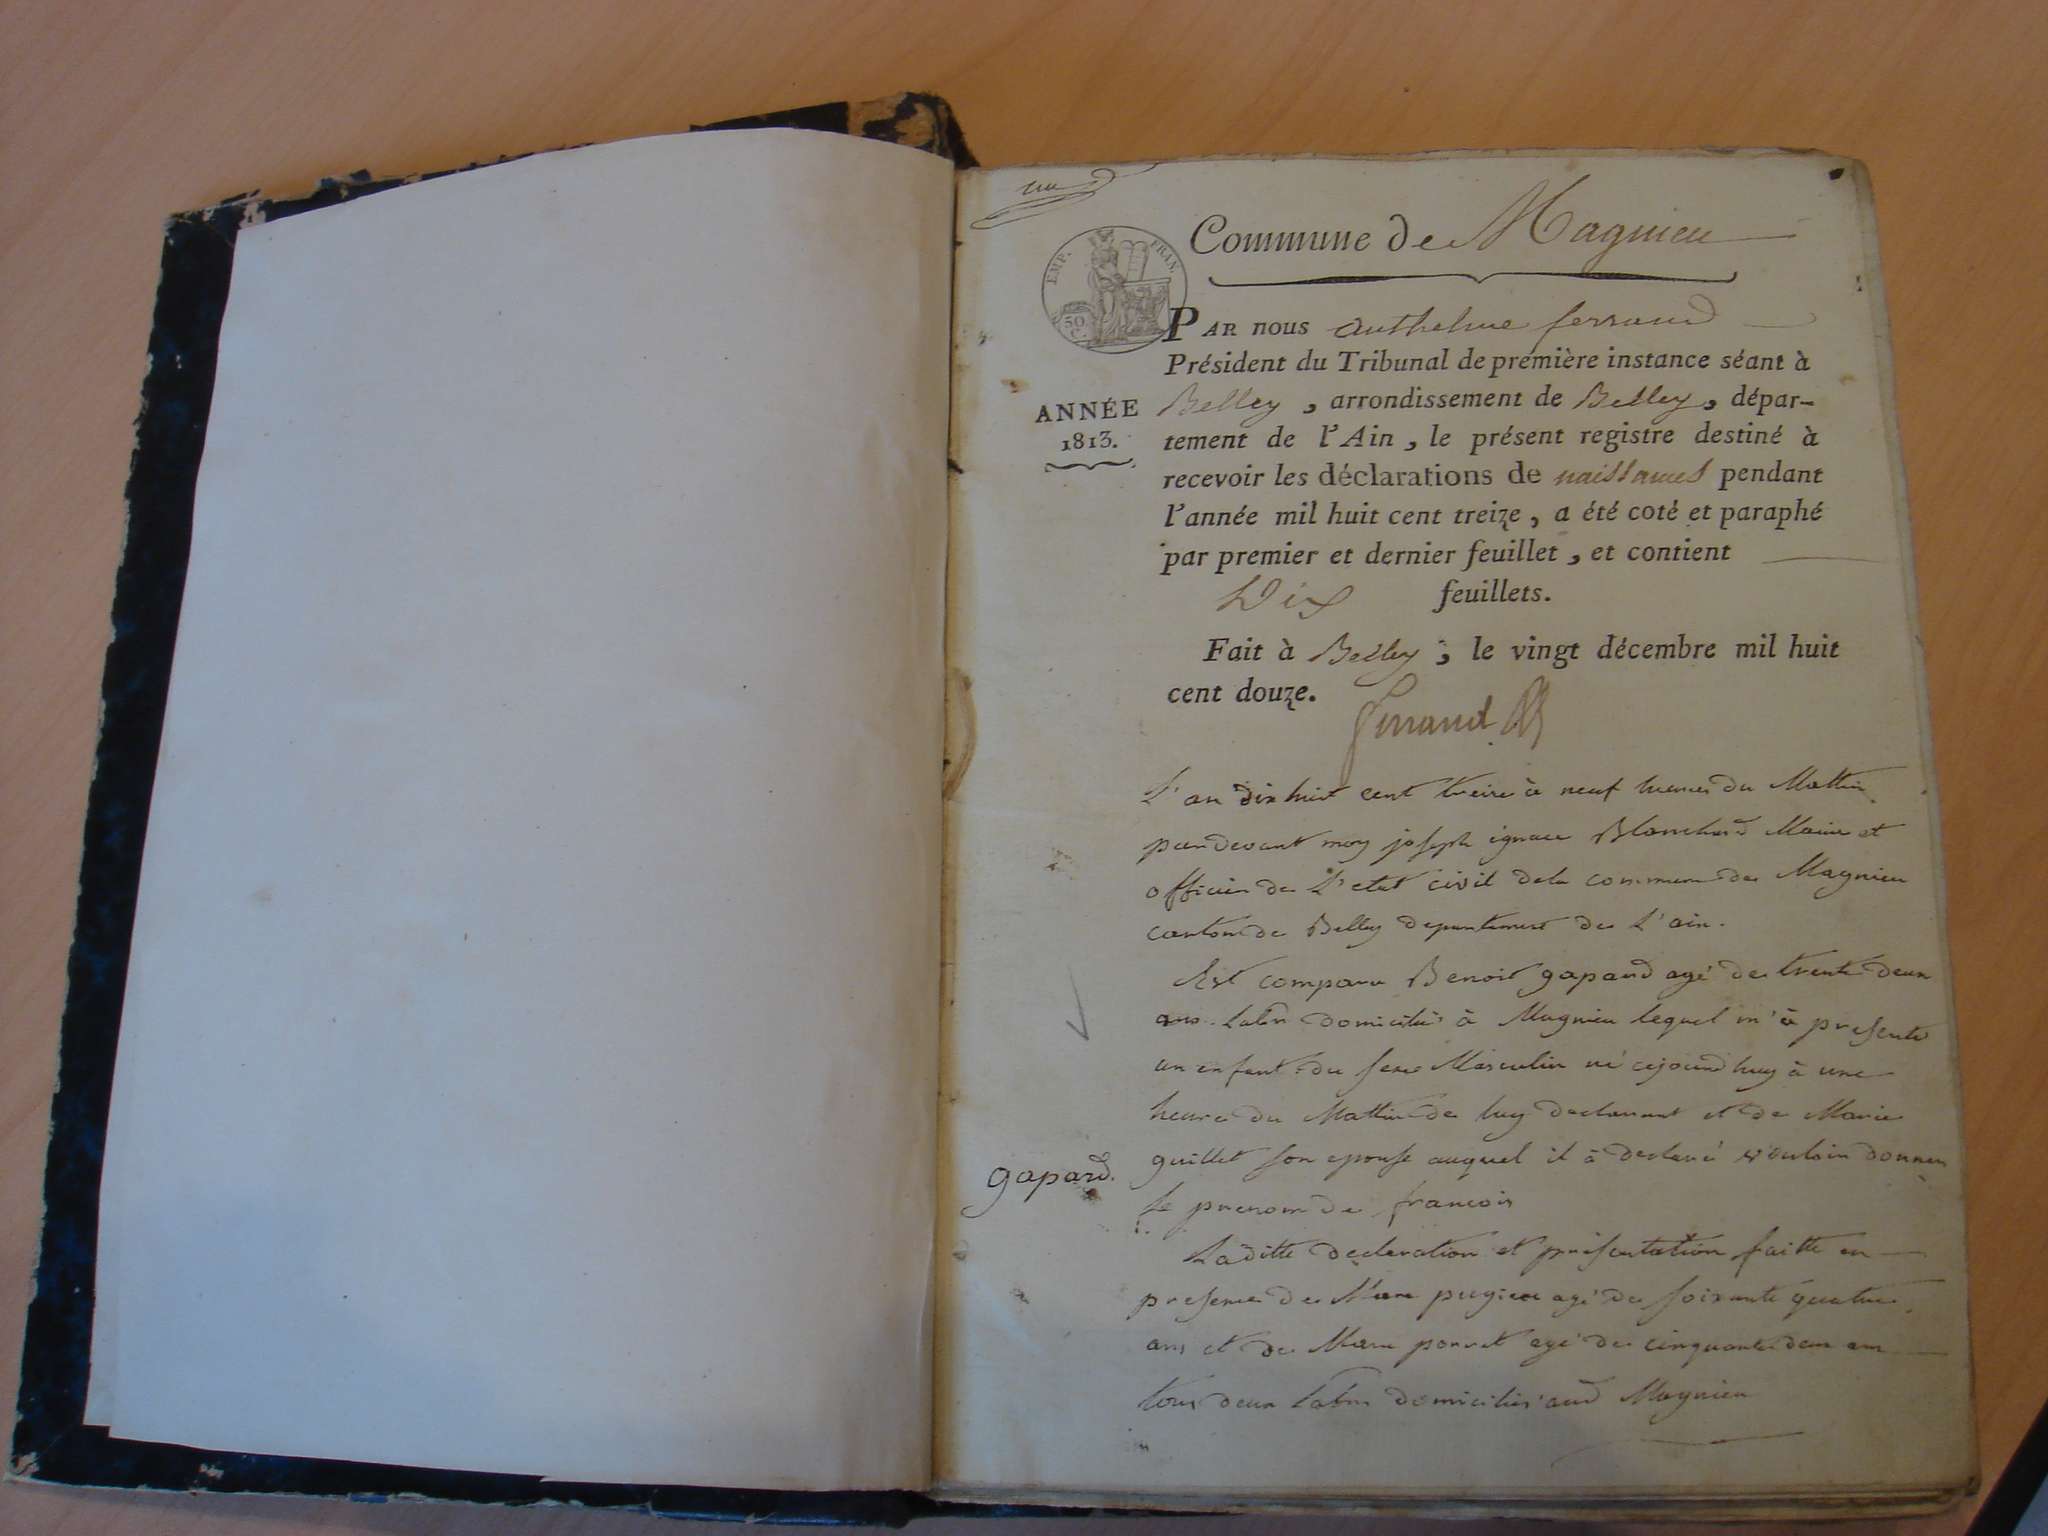 un
Commune de Magnieu
EMP. FRAN.
50 C.
PAR nous anthelme ferrand
Président du Tribunal de première instance séant à
ANNÉE
1813.
Belley, arrondissement de Belley, dépar-
tement de l'Ain, le présent registre destiné à
recevoir les déclarations de naissances pendant
l'année mil huit cent treize, a été coté et paraphé
par premier et dernier feuillet, et contient
Dix feuillets.
Fait à Belley, le vingt décembre mil huit
cent douze.
ferrand
L'an dix huit cent treize à neuf heures du Mattin
pardevant moy joseph ignace Blanchard Maire et
officier de L'etat civil dela commune de Magnieu
canton de Belley departement de L'ain.
Est comparu Benoit gapard agé de trente deux
ans. labr domicilié à Magnieu lequel m'à presenté
un enfant du sexe Masculin né cejourdhuy à une
heure du Mattin de luy declarant et de Marie
guillet son epouse auquel il à declaré vouloir donner
gapard.
le prenom de francois
Laditte declaration et présentation faitte en
presence de Marc pugieu agé de soixante quatre
ans et de Marc porret agé de cinquante deux ans
tous deux labrs domiciliés aud Magnieu